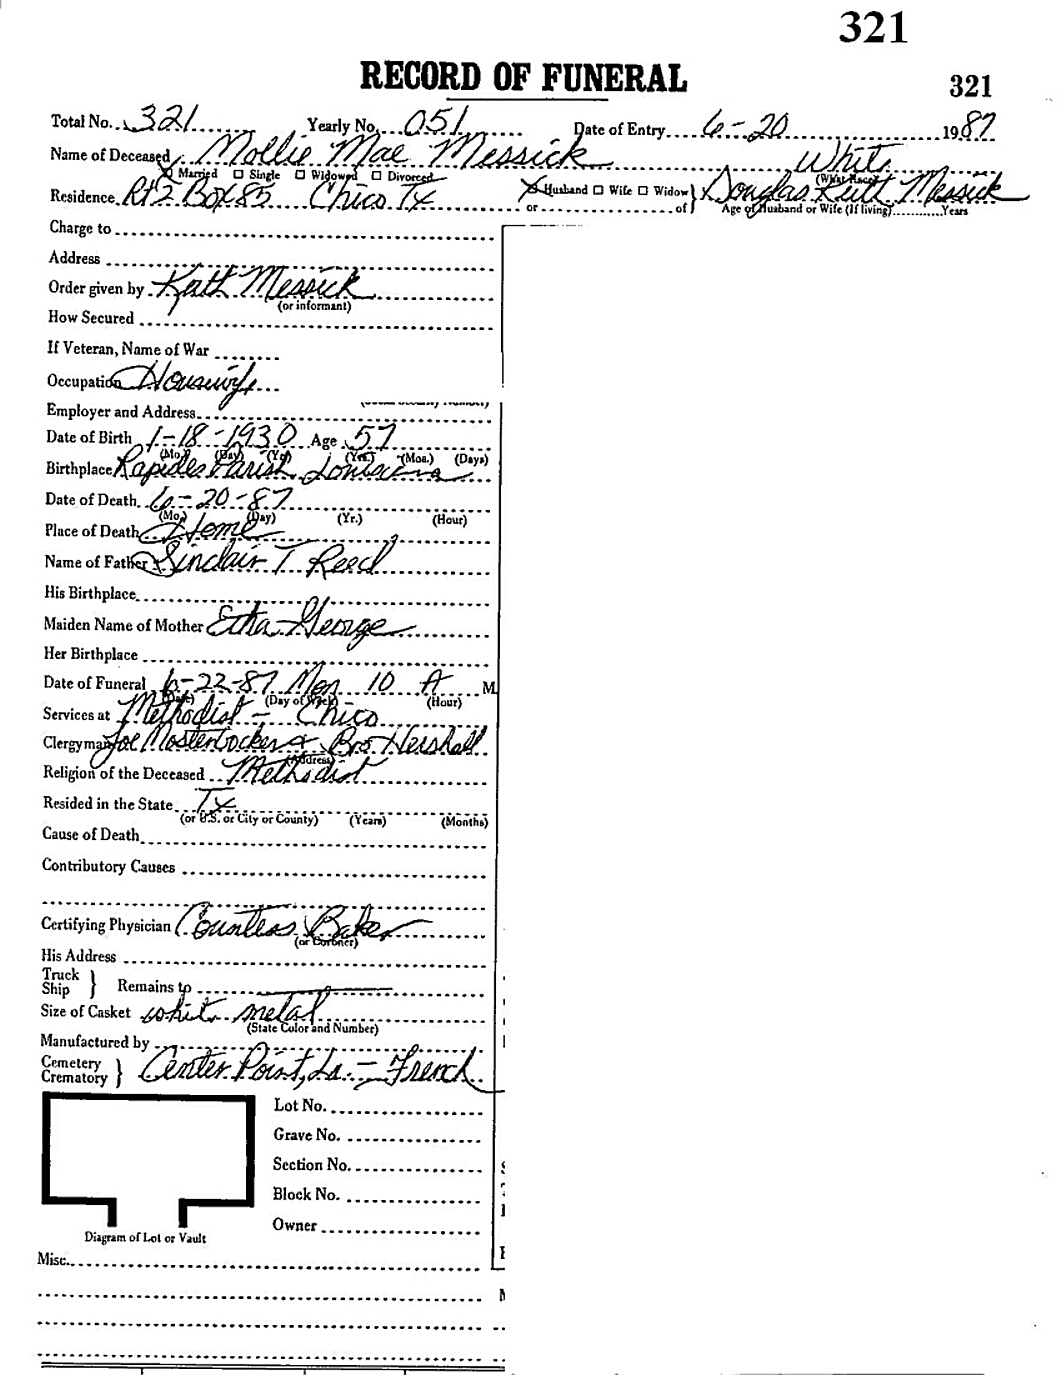 321
RECORD OF FUNERAL
321
Total No. 321 Yearly No. 051 Date of Entry 6-20 1987
Name of Deceased Mollie Mae Messick White
☒ Married ☐ Single ☐ Widowed ☐ Divorced (What Race)
Residence Rt 2 Box 85 Chico Tx ☒ Husband ☐ Wife ☐ Widow } Douglas Keith Messick
or of Age of Husband or Wife (If living) Years
Charge to
Address
Order given by Keith Messick
(or informant)
How Secured
If Veteran, Name of War
Occupation Housewife
Employer and Address
Date of Birth 1-18-1930 Age 57
(Mo.) (Day) (Yr.) (Yrs.) (Mos.) (Days)
Birthplace Rapides Parish Louisiana
Date of Death 6-20-87
(Mo.) (Day) (Yr.) (Hour)
Place of Death Home
Name of Father Sinclair T. Reed
His Birthplace
Maiden Name of Mother Etha George
Her Birthplace
Date of Funeral 6-22-87 Mon 10 A M
(Date) (Day of Week) (Hour)
Services at Methodist - Chico
Clergyman Joe Mostenbocker & Bro. Hershall
(Address)
Religion of the Deceased Methodist
Resided in the State Tx
(or U.S. or City or County) (Years) (Months)
Cause of Death
Contributory Causes
Certifying Physician Countess Baker
(or Coroner)
His Address
Truck
Ship } Remains to
Size of Casket white metal
(State Color and Number)
Manufactured by
Cemetery
Crematory } Center Point, La. - French
Lot No.
Grave No.
Section No.
Block No.
Owner
Diagram of Lot or Vault
Misc.